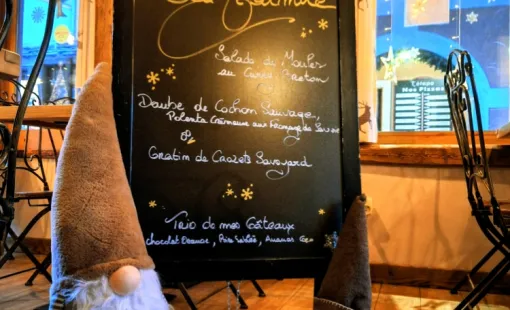 Gourmande
Salade de Moules
au Curry Breton
Daube de Cochon Sauvage,
Polenta Crémeuse aux Fromages de Savoie
&
Gratin de Crozets Savoyard
Trio de mes Gâteaux
chocolat Orange, Poire, Ananas Coco